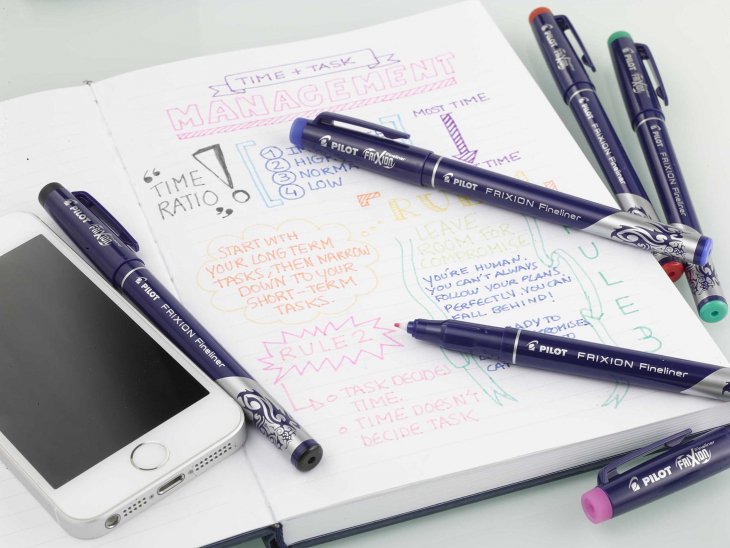 TIME + TASK
MANAGEMENT
"TIME
RATIO"
!
1
2 HIGH
3 NORMA
4 LOW
MOST TIME
TIME
START WITH
YOUR LONG TERM
TASKS, THEN NARROW
DOWN TO YOUR
SHORT-TERM
TASKS.
LEAVE
FOR
COMPROMISE
YOU'RE HUMAN.
YOU CAN'T ALWAYS
FOLLOW YOUR PLANS
PERFECTLY. YOU CAN
FALL BEHIND!
RULE 3
RULE 2
TASK DECIDES
TIME.
TIME DOESN'T
DECIDE TASK
PILOT FRIXION Fineliner
PILOT FRIXION Fineliner
PILOT FRIXION Fineliner
PILOT FRIXION Fineliner
PILOT FRIXION Fineliner
PILOT FRIXION Fineliner
FRIXION
PILOT FRIXION Fineliner
PILOT FRIXION